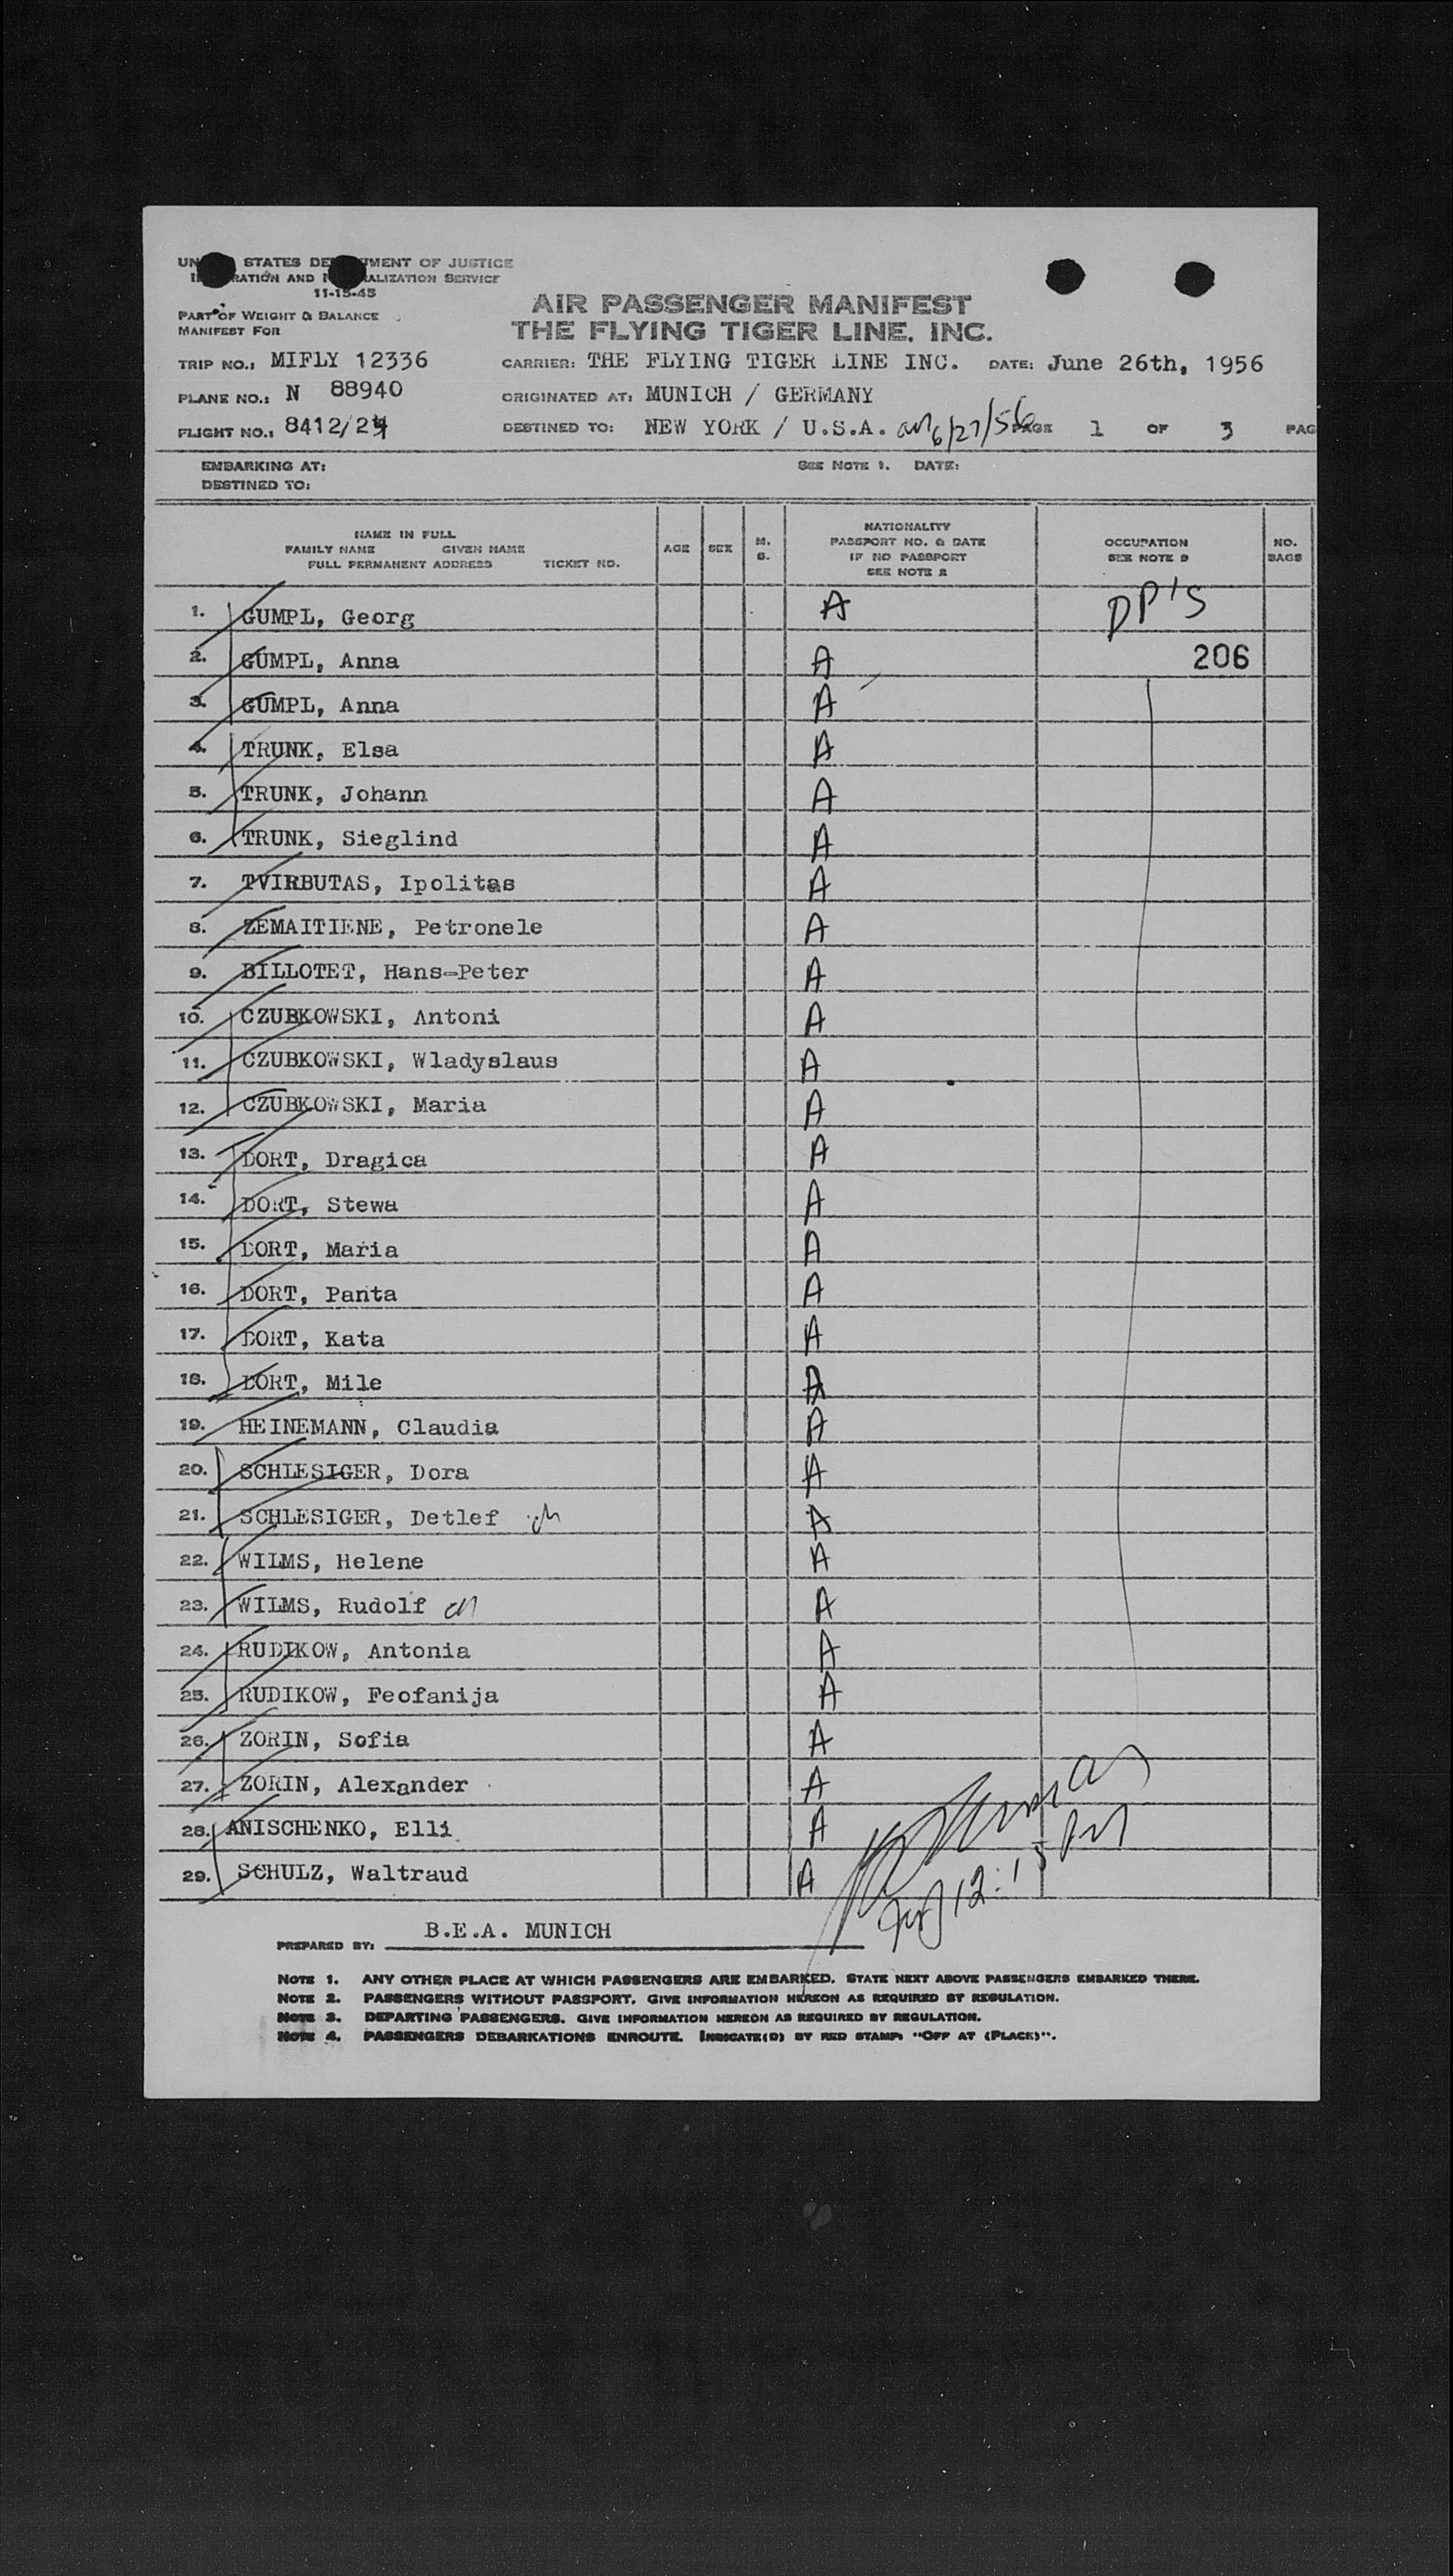 UN STATES DE MENT OF JUSTICE
RATION AND ALIZATION SERVICE
11-15-45
PART OF WEIGHT & BALANCE
MANIFEST FOR
AIR PASSENGER MANIFEST
THE FLYING TIGER LINE, INC.
TRIP NO.: MIFLY 12336 CARRIER: THE FLYING TIGER LINE INC. DATE: June 26th, 1956
PLANE NO.: N 88940 ORIGINATED AT: MUNICH / GERMANY
FLIGHT NO.: 8412/24 DESTINED TO: NEW YORK / U.S.A. arr 6/27/56 PAGE 1 OF 3 PAG
EMBARKING AT: SEE NOTE 1. DATE:
DESTINED TO:
NAME IN FULL
FAMILY NAME GIVEN NAME
FULL PERMANENT ADDRESS TICKET NO.
AGE SEX M. S.
NATIONALITY
PASSPORT NO. & DATE
IF NO PASSPORT
SEE NOTE 2
OCCUPATION
SEE NOTE 3
NO.
BAGS
1. GUMPL, Georg A DP'S
2. GUMPL, Anna A 206
3. GUMPL, Anna A
4. TRUNK, Elsa A
5. TRUNK, Johann A
6. TRUNK, Sieglind A
7. TVIRBUTAS, Ipolitas A
8. ZEMAITIENE, Petronele A
9. BILLOTET, Hans-Peter A
10. CZUBKOWSKI, Antoni A
11. CZUBKOWSKI, Wladyslaus A
12. CZUBKOWSKI, Maria A
13. DORT, Dragica A
14. DORT, Stewa A
15. DORT, Maria A
16. DORT, Panta A
17. DORT, Kata A
18. DORT, Mile A
19. HEINEMANN, Claudia A
20. SCHLESIGER, Dora A
21. SCHLESIGER, Detlef ch A
22. WILMS, Helene A
23. WILMS, Rudolf ch A
24. RUDIKOW, Antonia A
25. RUDIKOW, Feofanija A
26. ZORIN, Sofia A
27. ZORIN, Alexander A
28. ANISCHENKO, Elli A
29. SCHULZ, Waltraud A
12:15 PM
PREPARED BY: B.E.A. MUNICH
NOTE 1. ANY OTHER PLACE AT WHICH PASSENGERS ARE EMBARKED. STATE NEXT ABOVE PASSENGERS EMBARKED THERE.
NOTE 2. PASSENGERS WITHOUT PASSPORT. GIVE INFORMATION HEREON AS REQUIRED BY REGULATION.
NOTE 3. DEPARTING PASSENGERS. GIVE INFORMATION HEREON AS REQUIRED BY REGULATION.
NOTE 4. PASSENGERS DEBARKATIONS ENROUTE. INDICATE(D) BY RED STAMP: "OFF AT (PLACE)".